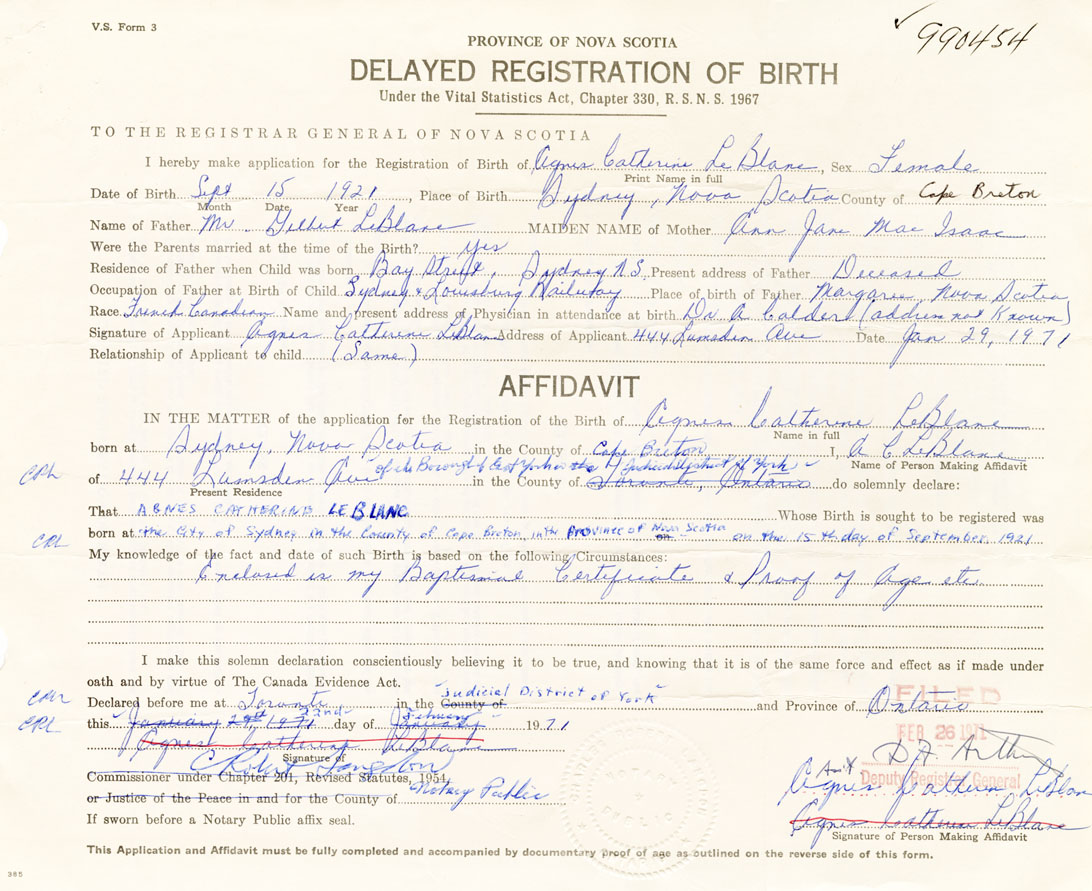 V.S. Form 3
990454
PROVINCE OF NOVA SCOTIA
DELAYED REGISTRATION OF BIRTH
Under the Vital Statistics Act, Chapter 330, R.S.N.S. 1967
TO THE REGISTRAR GENERAL OF NOVA SCOTIA
I hereby make application for the Registration of Birth of Agnes Catherine LeBlanc, Sex Female
Print Name in full
Date of Birth Sept 15 1921, Place of Birth Sydney, Nova Scotia County of Cape Breton
Month Date Year
Name of Father Mr. Gilbert LeBlanc MAIDEN NAME of Mother Ann Jane Mac Isaac
Were the Parents married at the time of the Birth? yes
Residence of Father when Child was born Bay Street, Sydney N.S. Present address of Father Deceased
Occupation of Father at Birth of Child Sydney & Louisburg Railway Place of birth of Father Margaree, Nova Scotia
Race French Canadian Name and present address of Physician in attendance at birth Dr A Calder (address not Known)
Signature of Applicant Agnes Catherine LeBlanc Address of Applicant 444 Lumsden Ave Date Jan 29, 1971
Relationship of Applicant to child (Same)
AFFIDAVIT
IN THE MATTER of the application for the Registration of the Birth of Agnes Catherine LeBlanc
Name in full
born at Sydney, Nova Scotia in the County of Cape Breton I, A C LeBlanc
Name of Person Making Affidavit
of the Borough of East York in the Judicial District of York
of 444 Lumsden Ave in the County of Toronto, Ontario do solemnly declare:
Present Residence
That AGNES CATHERINE LEBLANC Whose Birth is sought to be registered was
born at the City of Sydney in the County of Cape Breton in the Province of Nova Scotia on on the 15th day of September, 1921
My knowledge of the fact and date of such Birth is based on the following Circumstances:
Enclosed is my Baptismal Certificate & Proof of Age etc.
I make this solemn declaration conscientiously believing it to be true, and knowing that it is of the same force and effect as if made under
oath and by virtue of The Canada Evidence Act.
"Judicial District of York"
Declared before me at Toronto in the County of and Province of Ontario
22nd February
this January 29th, 1971 day of January 1971
FILED
FEB 26 1971
Deputy Registrar General
Agnes Catherine LeBlanc
Signature of
Commissioner under Chapter 201, Revised Statutes, 1954,
or Justice of the Peace in and for the County of Notary Public
If sworn before a Notary Public affix seal.
Agnes Catherine LeBlanc
Agnes Catherine LeBlanc
Signature of Person Making Affidavit
This Application and Affidavit must be fully completed and accompanied by documentary proof of age as outlined on the reverse side of this form.
385